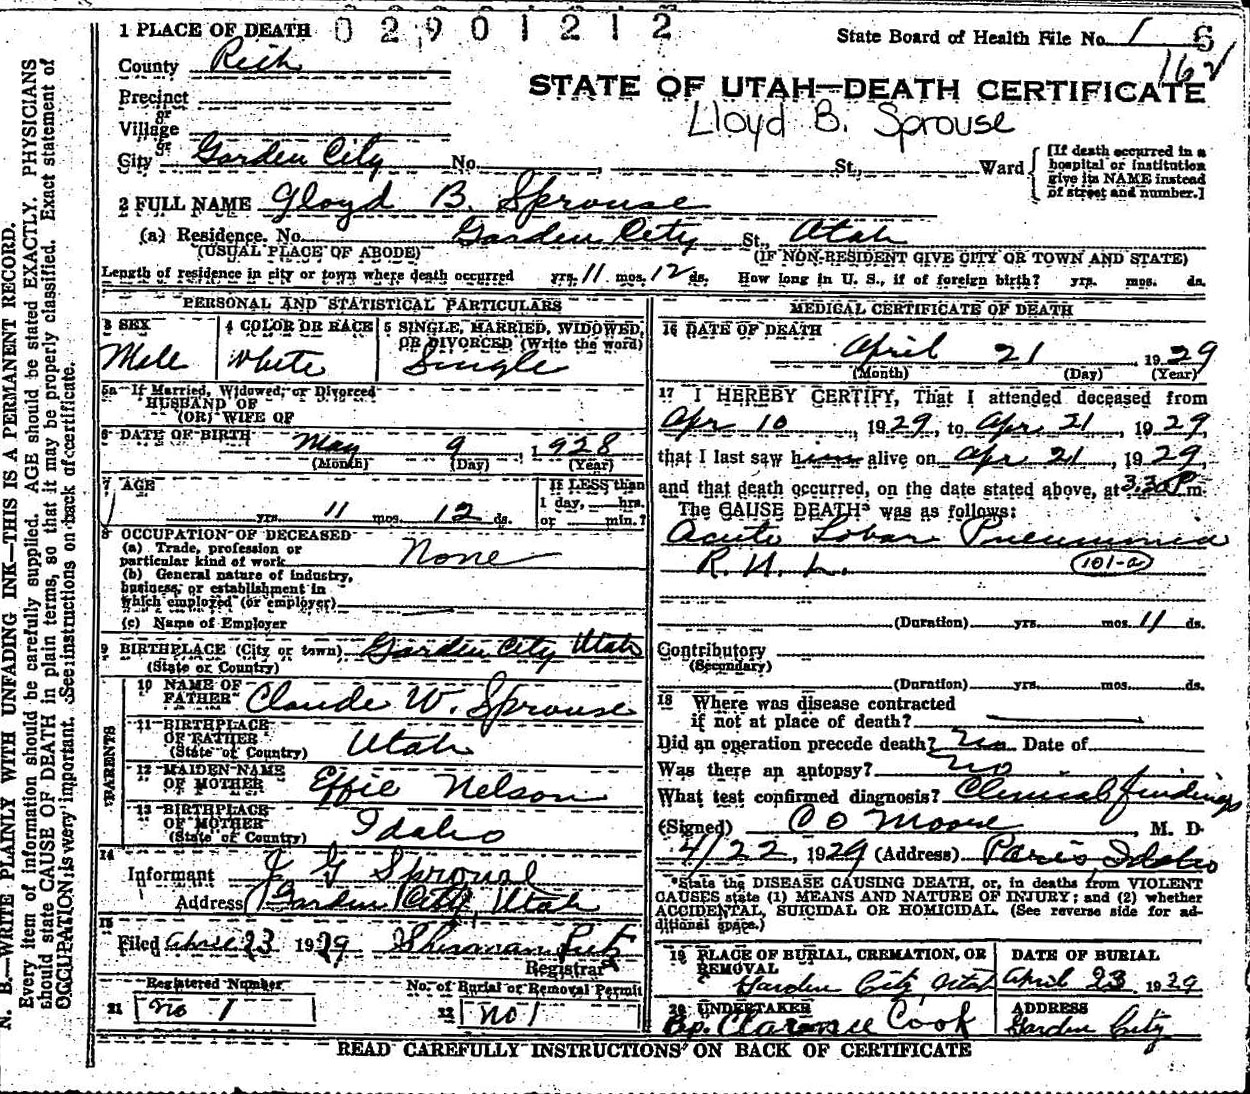 02901212
1 PLACE OF DEATH
State Board of Health File No. 1 S
County Rich
162
STATE OF UTAH—DEATH CERTIFICATE
Precinct
or
Village
Lloyd B. Sprouse
or
City Garden City No. , St., Ward
[If death occurred in a hospital or institution give its NAME instead of street and number.]
2 FULL NAME Gloyd B. Sprouse
(a) Residence. No. Garden City St., Utah
(USUAL PLACE OF ABODE) (IF NON-RESIDENT GIVE CITY OR TOWN AND STATE)
Length of residence in city or town where death occurred yrs. 11 mos. 12 ds. How long in U. S., if of foreign birth? yrs. mos. ds.
PERSONAL AND STATISTICAL PARTICULARS
3 SEX
Male
4 COLOR OR RACE
White
5 SINGLE, MARRIED, WIDOWED, OR DIVORCED (Write the word)
Single
5a If Married, Widowed, or Divorced
HUSBAND OF
(OR) WIFE OF
6 DATE OF BIRTH May 9, 1928
(Month) (Day) (Year)
7 AGE
yrs. 11 mos. 12 ds.
If LESS than
1 day, hrs.
or min.?
8 OCCUPATION OF DECEASED
(a) Trade, profession or
particular kind of work None
(b) General nature of industry,
business, or establishment in
which employed (or employer)
(c) Name of Employer
9 BIRTHPLACE (City or town) Garden City Utah
(State or Country)
PARENTS
10 NAME OF FATHER Claude W. Sprouse
11 BIRTHPLACE OF FATHER (State or Country) Utah
12 MAIDEN NAME OF MOTHER Effie Nelson
13 BIRTHPLACE OF MOTHER (State or Country) Idaho
14
Informant J G
Address Garden City, Utah
15
Filed April 23 1929 Sherman
Registrar
Registered Number
21 No 1
No. of Burial or Removal Permit
22 No 1
MEDICAL CERTIFICATE OF DEATH
16 DATE OF DEATH
April 21, 1929
(Month) (Day) (Year)
17 I HEREBY CERTIFY, That I attended deceased from
Apr 10, 1929, to Apr 21, 1929,
that I last saw him alive on Apr 21, 1929,
and that death occurred, on the date stated above, at 3:30 P m.
The CAUSE DEATH* was as follows:
Acute Lobar Pneumonia
R. H. L. 101-a
(Duration) yrs. mos. 11 ds.
Contributory
(Secondary)
(Duration) yrs. mos. ds.
18 Where was disease contracted
if not at place of death?
Did an operation precede death? No Date of
Was there an autopsy? No
What test confirmed diagnosis? Clinical findings
(Signed) C O Moore, M. D.
4/22, 1929 (Address) Paris, Idaho
*State the DISEASE CAUSING DEATH, or, in deaths from VIOLENT
CAUSES state (1) MEANS AND NATURE OF INJURY; and (2) whether
ACCIDENTAL, SUICIDAL OR HOMICIDAL. (See reverse side for ad-
ditional space.)
19 PLACE OF BURIAL, CREMATION, OR REMOVAL
Garden City, Utah
DATE OF BURIAL
April 23, 1929
20 UNDERTAKER
Bp. Clarence Cook
ADDRESS
Garden City
READ CAREFULLY INSTRUCTIONS ON BACK OF CERTIFICATE
N. B.—WRITE PLAINLY WITH UNFADING INK—THIS IS A PERMANENT RECORD.
Every item of information should be carefully supplied. AGE should be stated EXACTLY. PHYSICIANS
should state CAUSE OF DEATH in plain terms, so that it may be properly classified. Exact statement of
OCCUPATION is very important. See instructions on back of certificate.